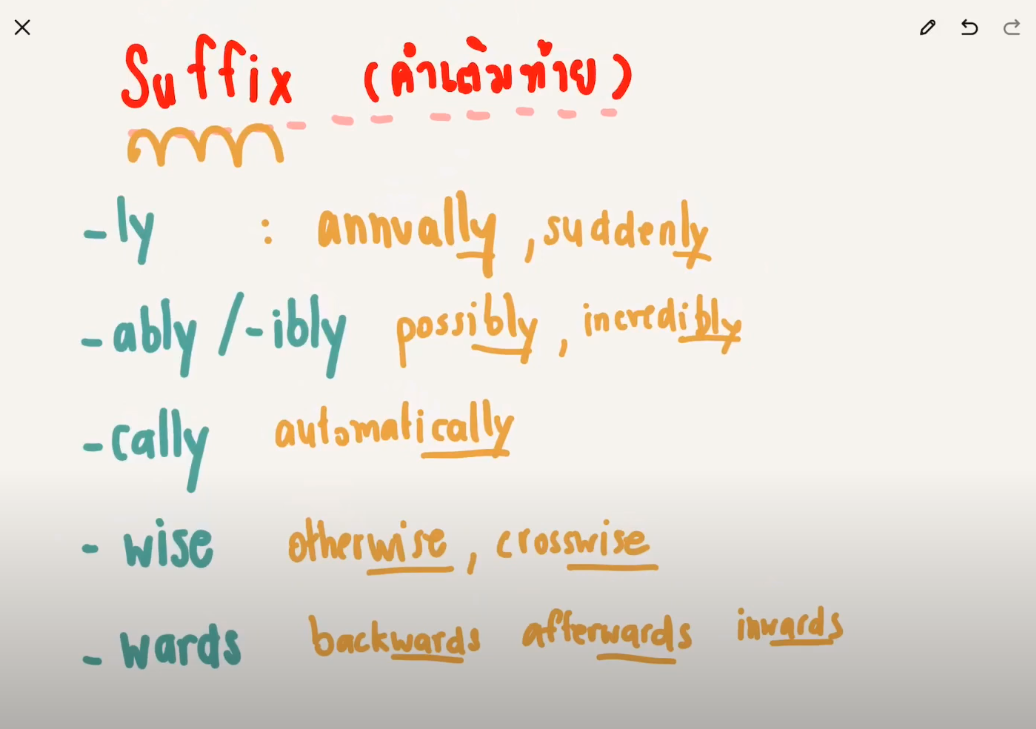 Suffix (คำเติมท้าย)
-ly : annually, suddenly
-ably /-ibly possibly, incredibly
-cally automatically
- wise otherwise, crosswise
- wards backwards afterwards inwards